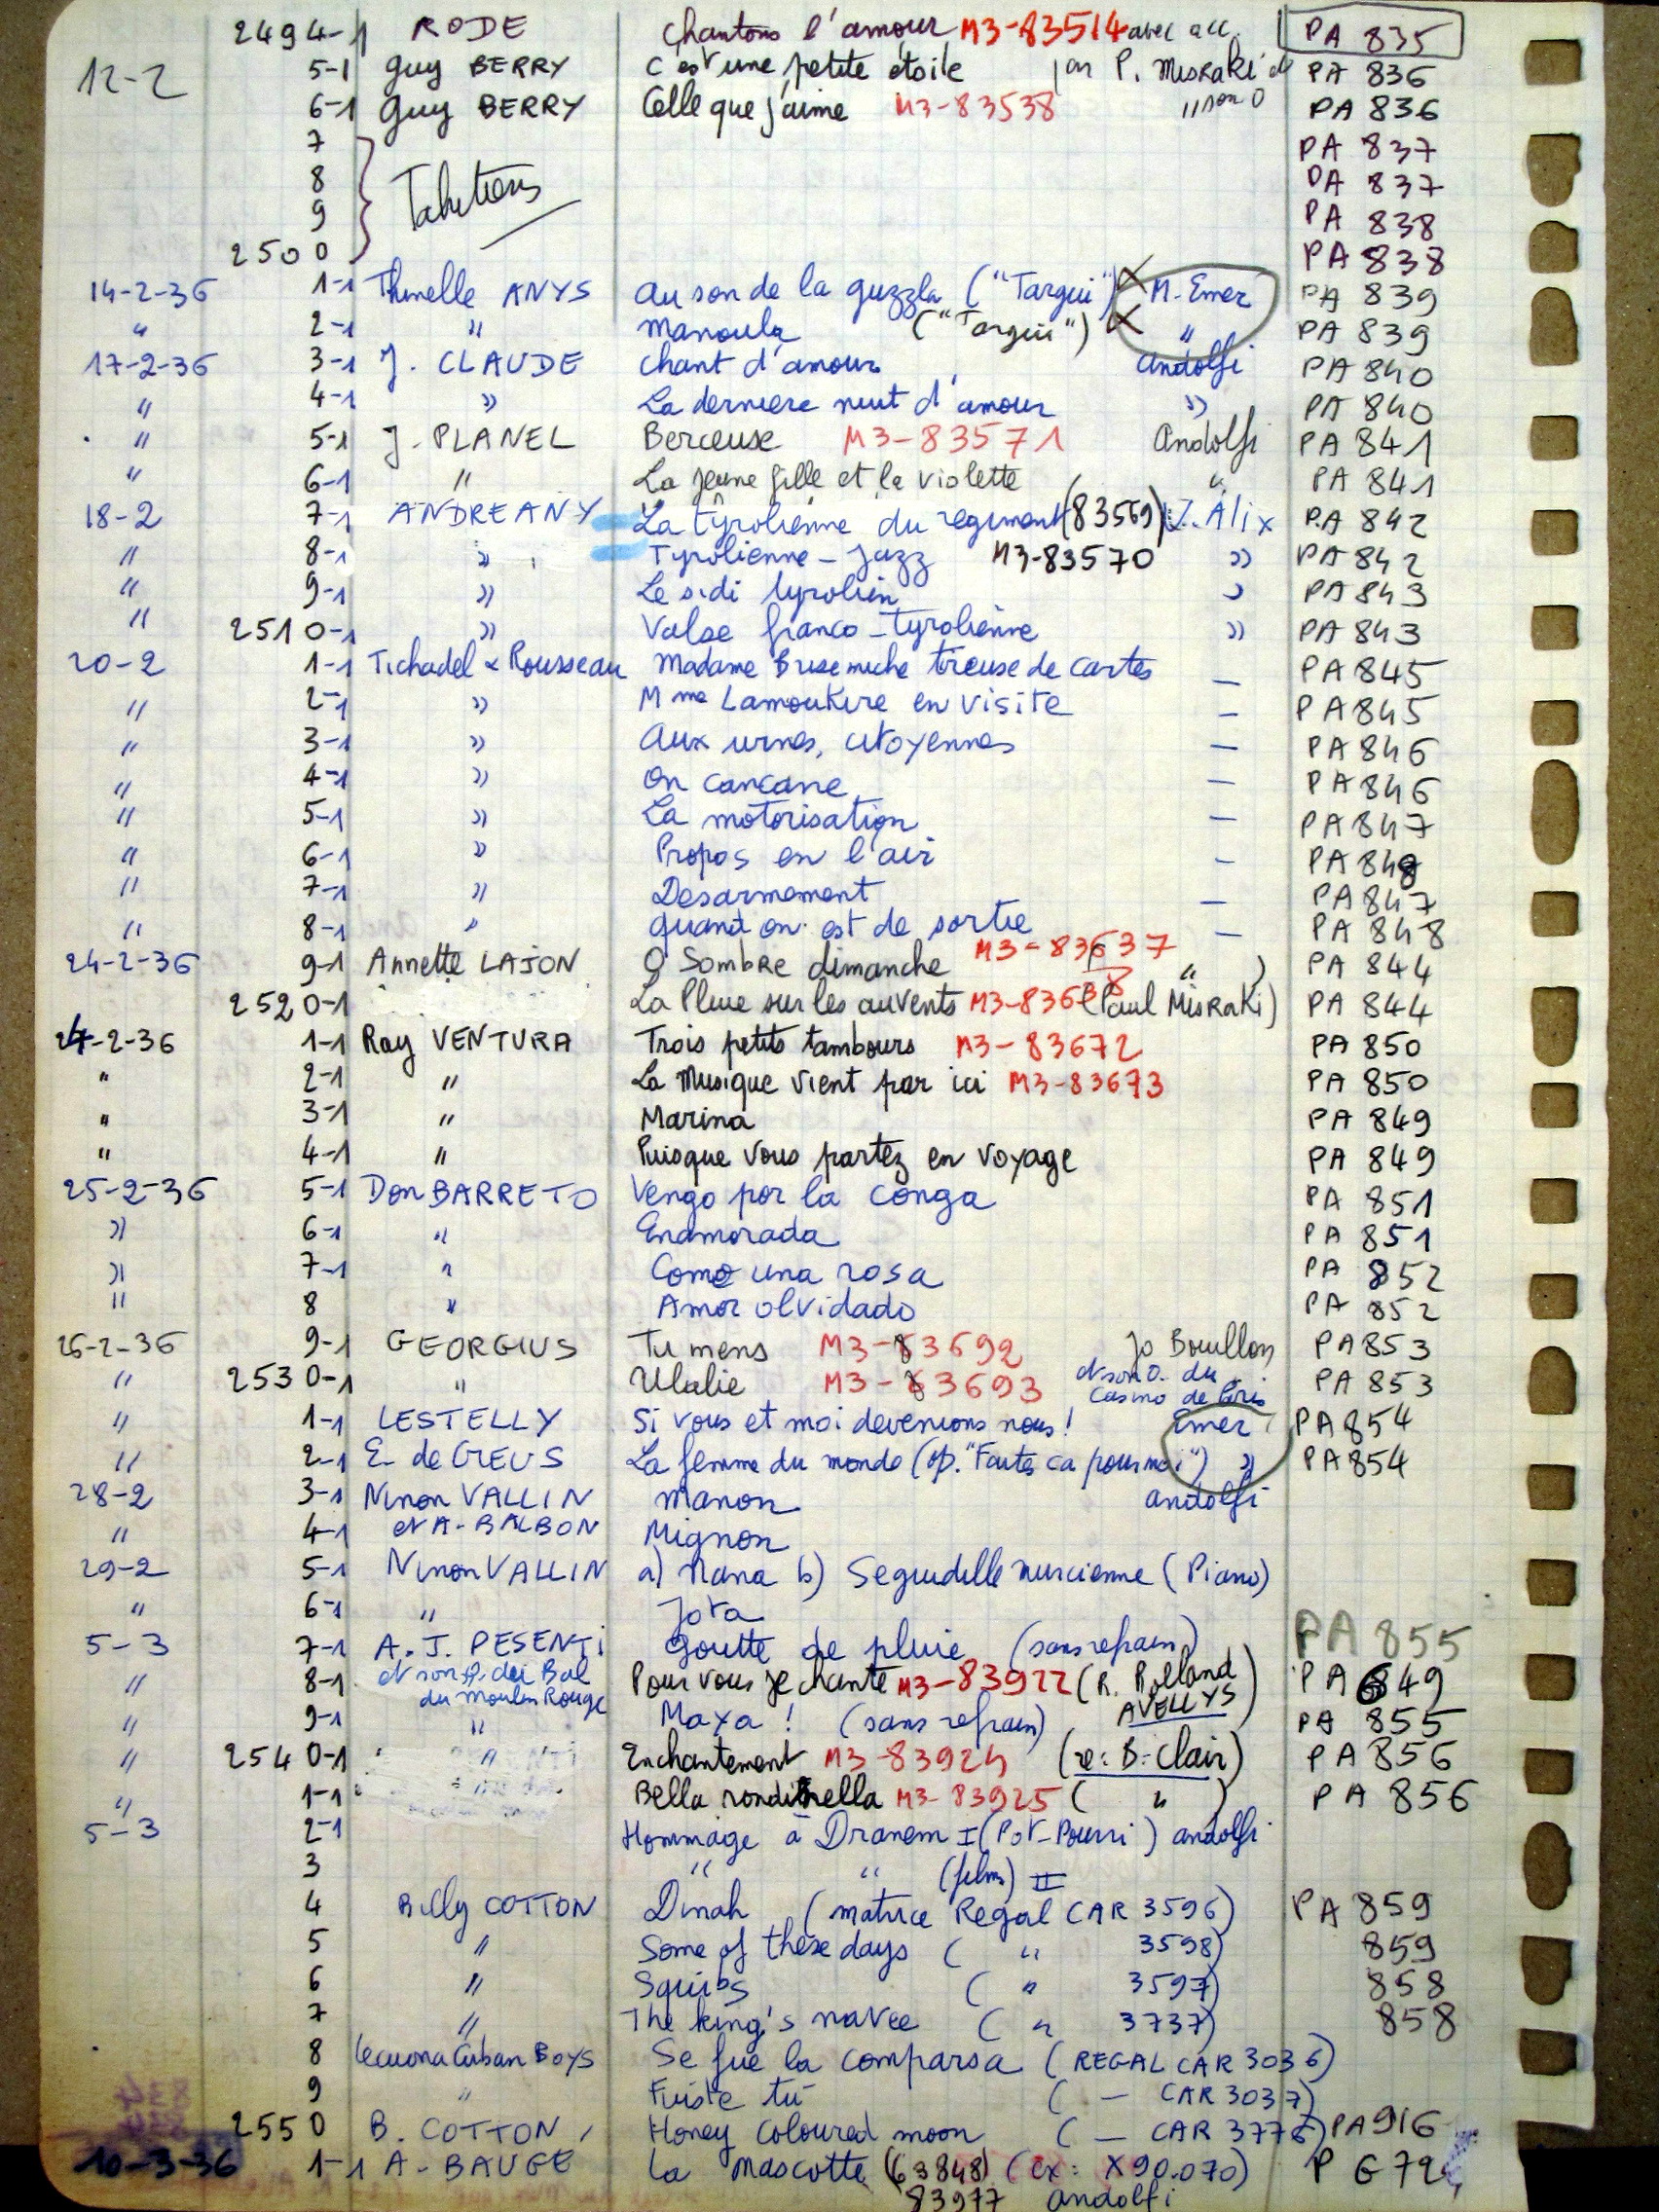 2494-1 RODE Chantons l'amour M3-83514 avec acc. PA 835
12-2 5-1 Guy BERRY C'est une petite étoile par P. Misraki et PA 836
6-1 Guy BERRY Celle que j'aime M3-83538 " son O PA 836
7 PA 837
8 Tahitiens PA 837
9 PA 838
2500 PA 838
14-2-36 1-1 Thmelle ANYS Au son de la guzzla ("Targui") M. Emer PA 839
" 2-1 " Manoula ("Targui") " PA 839
17-2-36 3-1 J. CLAUDE Chant d'amour Andolfi PA 840
" 4-1 " La derniere nuit d'amour " PA 840
" 5-1 J. PLANEL Berceuse M3-83571 Andolfi PA 841
" 6-1 " La jeune fille et la violette " PA 841
18-2 7-1 ANDREANY La tyrolienne du regiment (83569) V. Alix PA 842
" 8-1 " Tyrolienne-Jazz M3-83570 " PA 842
" 9-1 " Le sidi tyrolien " PA 843
" 2510-1 " Valse franco-tyrolienne " PA 843
20-2 1-1 Tichadel & Rousseau Madame Brisemiche tireuse de cartes — PA 845
" 2-1 " Mme Lamoukère en visite — PA 845
" 3-1 " Aux urnes, citoyennes — PA 846
" 4-1 " On cancane — PA 846
" 5-1 " La motorisation — PA 847
" 6-1 " Propos en l'air — PA 848
" 7-1 " Desarmement — PA 847
" 8-1 " Quand on est de sortie — PA 848
24-2-36 9-1 Annette LAJON O Sombre dimanche M3-83637 " ) PA 844
2520-1 La Pluie sur les auvents M3-83638 (Paul MISRAKI) PA 844
24-2-36 1-1 Ray VENTURA Trois petits tambours M3-83672 PA 850
" 2-1 " La Musique vient par ici M3-83673 PA 850
" 3-1 " Marina PA 849
" 4-1 " Puisque vous partez en voyage PA 849
25-2-36 5-1 Don BARRETO Vengo por la conga PA 851
" 6-1 " Enamorada PA 851
" 7-1 " Como una rosa PA 852
" 8 " Amor olvidado PA 852
26-2-36 9-1 GEORGIUS Tu mens M3-83692 Jo Bouillon PA 853
" 2530-1 " Ulalie M3-83693 et son O. du Casino de Paris PA 853
" 1-1 LESTELLY Si vous et moi devenions nous! Emer PA 854
" 2-1 E. de CREUS La femme du monde (op. "Faites ca pour moi") " PA 854
28-2 3-1 Ninon VALLIN Manon Andolfi
" 4-1 et A. BALBON Mignon
29-2 5-1 Ninon VALLIN a) Nana b) Seguidille murcienne (Piano)
" 6-1 " Jota
5-3 7-1 A. J. PESENTI Goutte de pluie (sans refrain) PA 855
" 8-1 et son O. du Bal du Moulin Rouge Pour vous je chante M3-83922 (R. Rolland AVELLYS) PA 649
" 9-1 " Maya! (sans refrain) PA 855
" 2540-1 Enchantement M3-83924 (re: B. Clair) PA 856
" 1-1 Bella rondinella M3-83925 ( " ) PA 856
5-3 2-1 Hommage à Dranem I (Pot-Pourri) Andolfi
3 " " (film) II
4 Billy COTTON Dinah (matrice Regal CAR 3596) PA 859
5 " Some of these days ( " 3598) 859
6 " Squibs ( " 3597) 858
7 " The king's navee ( " 3737) 858
8 Lecuona Cuban Boys Se fue la comparsa (REGAL CAR 3036)
9 " Fuiste tú ( — CAR 3037)
2550 B. COTTON Honey coloured moon ( — CAR 3776) PA 916
10-3-36 1-1 A. BAUGE La Mascotte (63848) (ex: X90.070) P G 72
83977 Andolfi